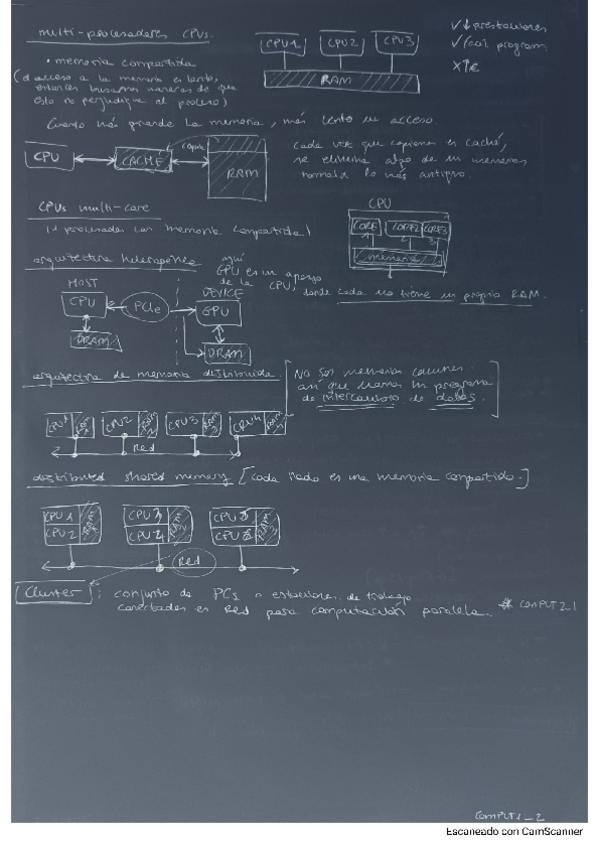 multi-procesadores CPUs.
• memoria compartida
(el acceso a la memoria es lento,
entonces buscamos maneras de que
esto no perjudique al proceso)
CPU1 CPU2 CPU3
RAM
✓↓ prestaciones
✓ fácil program
X↑€
Cuanto más grande la memoria, más lento su acceso.
CPU
CACHÉ
copia
RAM
cada vez que copiamos en caché,
se elimina algo de su memoria
normal lo más antiguo.
CPUs multi-core
procesador con memoria compartida)
CPU
CORE 1 CORE 2 CORE 3
memoria
arquitectura heterogénea
aquí
GPU es un apoyo
de la CPU, donde cada uno tiene su propio RAM.
HOST
CPU
PCIe
DEVICE
GPU
DRAM
DRAM
arquitectura de memoria distribuida
No son memorias comunes
así que usamos un programa
de intercambio de datos.
CPU1 RAM CPU2 RAM CPU3 RAM CPU4 RAM
Red
distributed shared memory [cada nodo es una memoria compartida.]
CPU1 CPU2 RAM
CPU3 CPU4 RAM
CPU5 CPU6 RAM
Red
Cluster: conjunto de PCs o estaciones de trabajo
conectadas en Red para computación paralela. * COMPUT2_1
COMPUT1_2
Escaneado con CamScanner